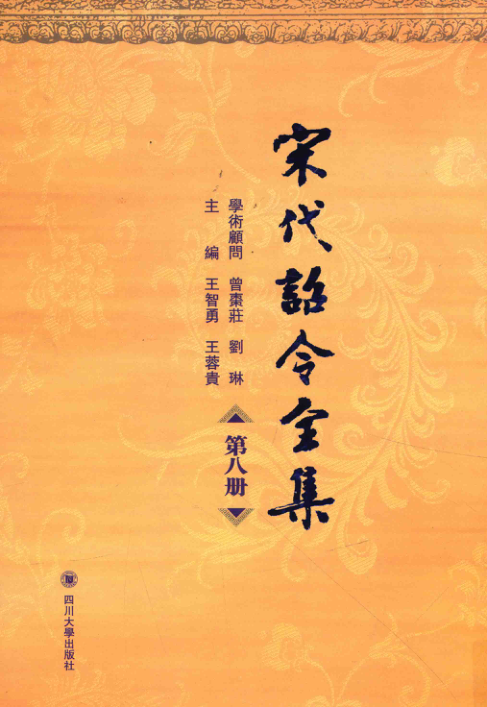 宋代詔令全集
學術顧問 曾棗莊 劉琳
主編 王智勇 王蓉貴
第八册
四川大學出版社